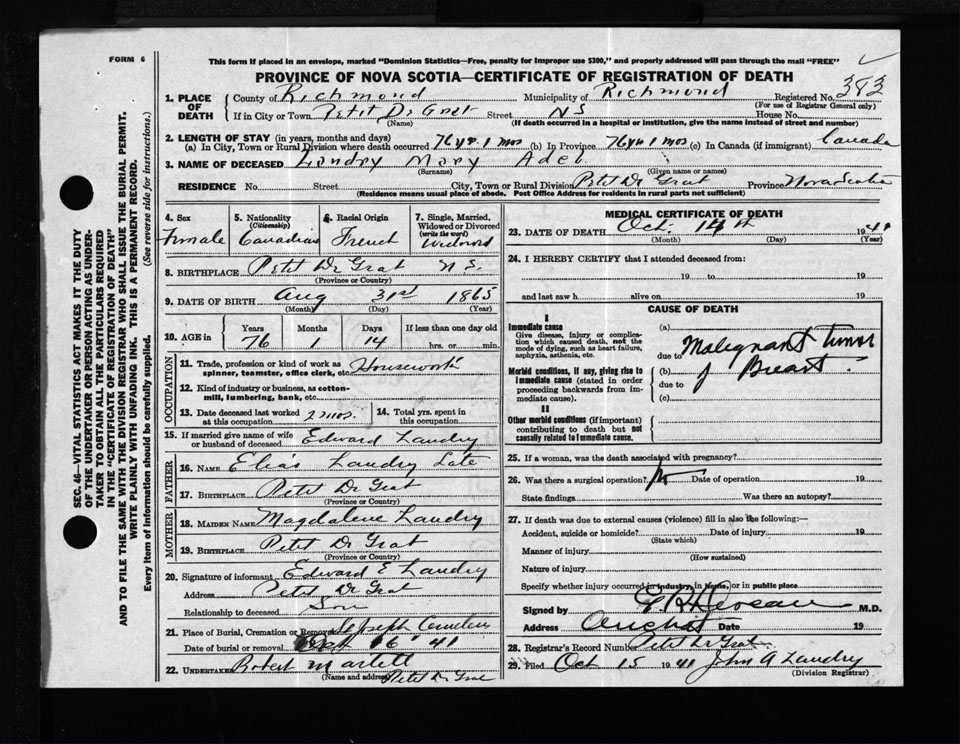 FORM 6
This form if placed in an envelope, marked "Dominion Statistics—Free, penalty for improper use $300," and properly addressed will pass through the mail "FREE"
PROVINCE OF NOVA SCOTIA—CERTIFICATE OF REGISTRATION OF DEATH
1. PLACE OF DEATH
County of Richmond Municipality of Richmond Registered No. 383
(For use of Registrar General only)
If in City or Town Petit De Grat Street NS House No.
(Name) (If death occurred in a hospital or institution, give the name instead of street and number)
2. LENGTH OF STAY (in years, months and days)
(a) In City, Town or Rural Division where death occurred 76 yr. 1 mos (b) In Province 76 yr 1 mos (c) In Canada (if immigrant) Canada
3. NAME OF DECEASED Landry Mary Adel
(Surname) (Given name or names)
RESIDENCE No. Street City, Town or Rural Division Petit De Grat Province Nova Scotia
(Residence means usual place of abode. Post Office Address for residents in rural parts not sufficient)
SEC. 46—VITAL STATISTICS ACT MAKES IT THE DUTY
OF THE UNDERTAKER OR PERSON ACTING AS UNDER-
TAKER TO OBTAIN ALL THE PARTICULARS REQUIRED
IN THE "CERTIFICATE OF REGISTRATION OF DEATH"
AND TO FILE THE SAME WITH THE DIVISION REGISTRAR WHO SHALL ISSUE THE BURIAL PERMIT.
WRITE PLAINLY WITH UNFADING INK. THIS IS A PERMANENT RECORD.
Every item of Information should be carefully supplied. (See reverse side for instructions.)
4. Sex 5. Nationality 6. Racial Origin 7. Single, Married,
(Citizenship) Widowed or Divorced
(write the word)
Female Canadian French Widowed
8. BIRTHPLACE Petit De Grat N S.
(Province or Country)
9. DATE OF BIRTH Aug 31st 1865
(Month) (Day) (Year)
10. AGE in
Years Months Days If less than one day old
76 1 14 hrs. or min.
OCCUPATION
11. Trade, profession or kind of work as
spinner, teamster, office clerk, etc. Housework
12. Kind of industry or business, as cotton-
mill, lumbering, bank, etc.
13. Date deceased last worked 2 mos. 14. Total yrs. spent in
at this occupation at this occupation
15. If married give name of wife
or husband of deceased Edward Landry
FATHER
16. NAME Elias Landry Late
17. BIRTHPLACE Petit De Grat
(Province or Country)
MOTHER
18. MAIDEN NAME Magdalene Landry
19. BIRTHPLACE Petit De Grat
(Province or Country)
20. Signature of informant Edward E Landry
Address Petit De Grat
Relationship to deceased Son
21. Place of Burial, Cremation or Removal St Joseph Cemetery
Date of burial or removal Oct 16 1941
22. UNDERTAKER Robert Martell
(Name and address) Petit De Grat
MEDICAL CERTIFICATE OF DEATH
23. DATE OF DEATH Oct. 14th 1941
(Month) (Day) (Year)
24. I HEREBY CERTIFY that I attended deceased from:
19 to 19
and last saw h alive on 19
CAUSE OF DEATH
I
Immediate cause
Give disease, injury or complica-
tion which caused death, not the
mode of dying, such as heart failure,
asphyxia, asthenia, etc.
Morbid conditions, if any, giving rise to
immediate cause (stated in order
proceeding backwards from im-
mediate cause).
II
Other morbid conditions (if important)
contributing to death but not
causally related to immediate cause.
(a)
due to Malignant tumor
(b) of Breast.
due to
(c)
25. If a woman, was the death associated with pregnancy?
26. Was there a surgical operation? Date of operation 19
State findings Was there an autopsy?
27. If death was due to external causes (violence) fill in also the following:—
Accident, suicide or homicide? Date of injury 19
(State which)
Manner of injury
(How sustained)
Nature of injury
Specify whether injury occurred in industry, in home, or in public place
Signed by Deveau M.D.
Address Arichat Date 19
28. Registrar's Record Number Petit De Grat
29. Filed Oct 15 1941 John A Landry
(Division Registrar)